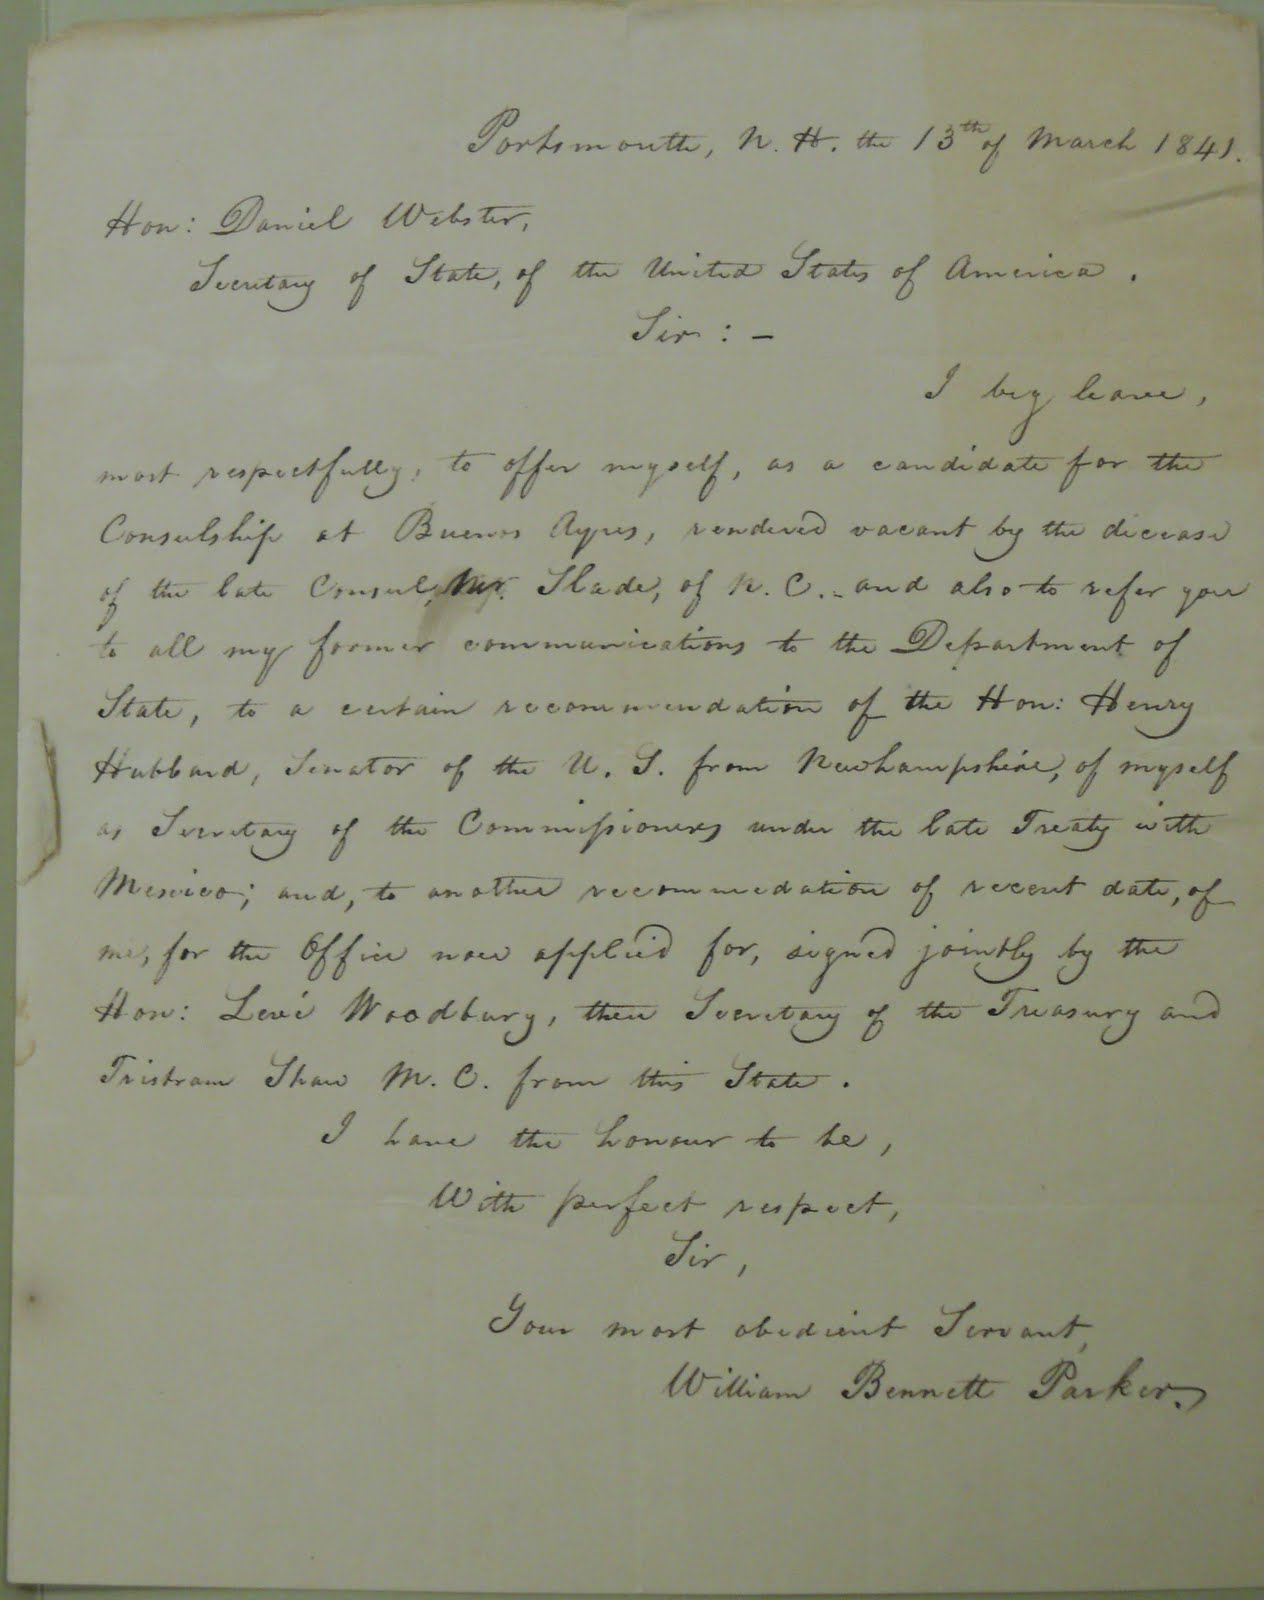 Portsmouth, N. H. the 13th of March 1841.
Hon: Daniel Webster,
Secretary of State, of the United States of America.
Sir: -
I beg leave,
most respectfully, to offer myself, as a candidate for the
Consulship at Buenos Ayres, rendered vacant by the decease
of the late Consul, Mr. Slade, of N. C. - and also to refer you
to all my former communications to the Department of
State, to a certain recommendation of the Hon: Henry
Hubbard, Senator of the U. S. from Newhampshire, of myself
as Secretary of the Commissioners under the late Treaty with
Mexico; and, to another recommedation of recent date, of
me, for the Office now applied for, signed jointly by the
Hon: Levi Woodbury, then Secretary of the Treasury and
Tristram Shaw M. C. from this State.
I have the honour to be,
With perfect respect,
Sir,
Your most obedient Servant,
William Bennett Parker.